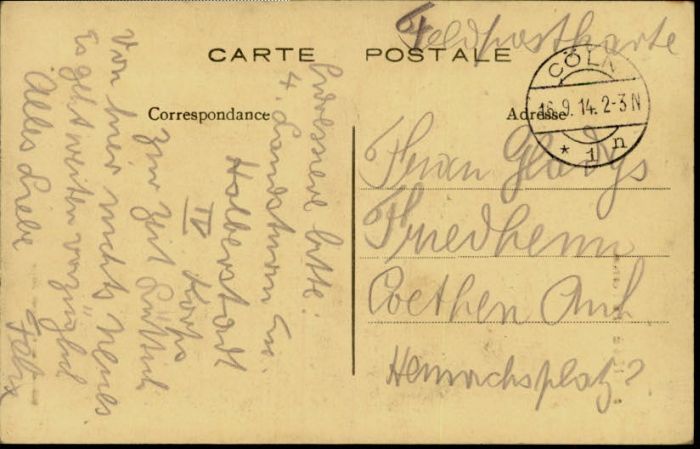 Feldpostkarte
CARTE POSTALE
Correspondance
Adresse
CÖLN
16.9.14.2-3N
* 1 n
Adressiere bitte:
4. Landsturm
Halberstadt
IV Korps
zur Zeit Lüttich
Von hier nichts Neues.
Es geht weiter vorzüglich
Alles Liebe
Felix
Frau Gladys
Friedheim
Coethen Anh
Heinrichsplatz 2